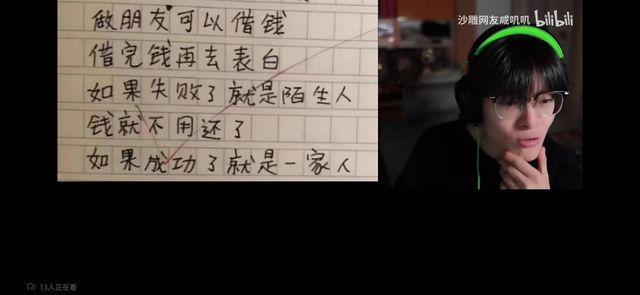 做朋友可以借钱
借完钱再去表白
如果失败了就是陌生人
钱就不用还了
如果成功了就是一家人
沙雕网友咸叽叽
bilibili
13人正在看